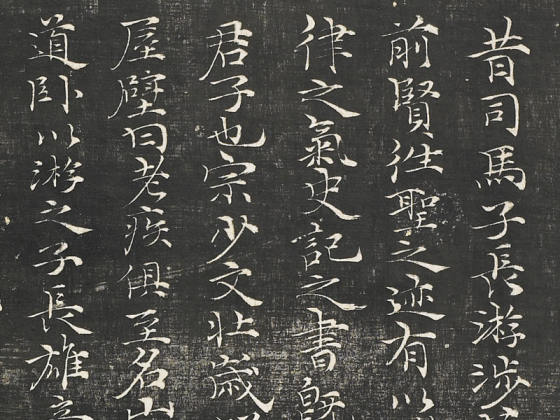 昔司馬子長游涉
前賢往聖之迹有以
律之氣史記之書既
君子也宗少文壯歲
屋壁曰老疾俱至名山
道卧以游之子長雄